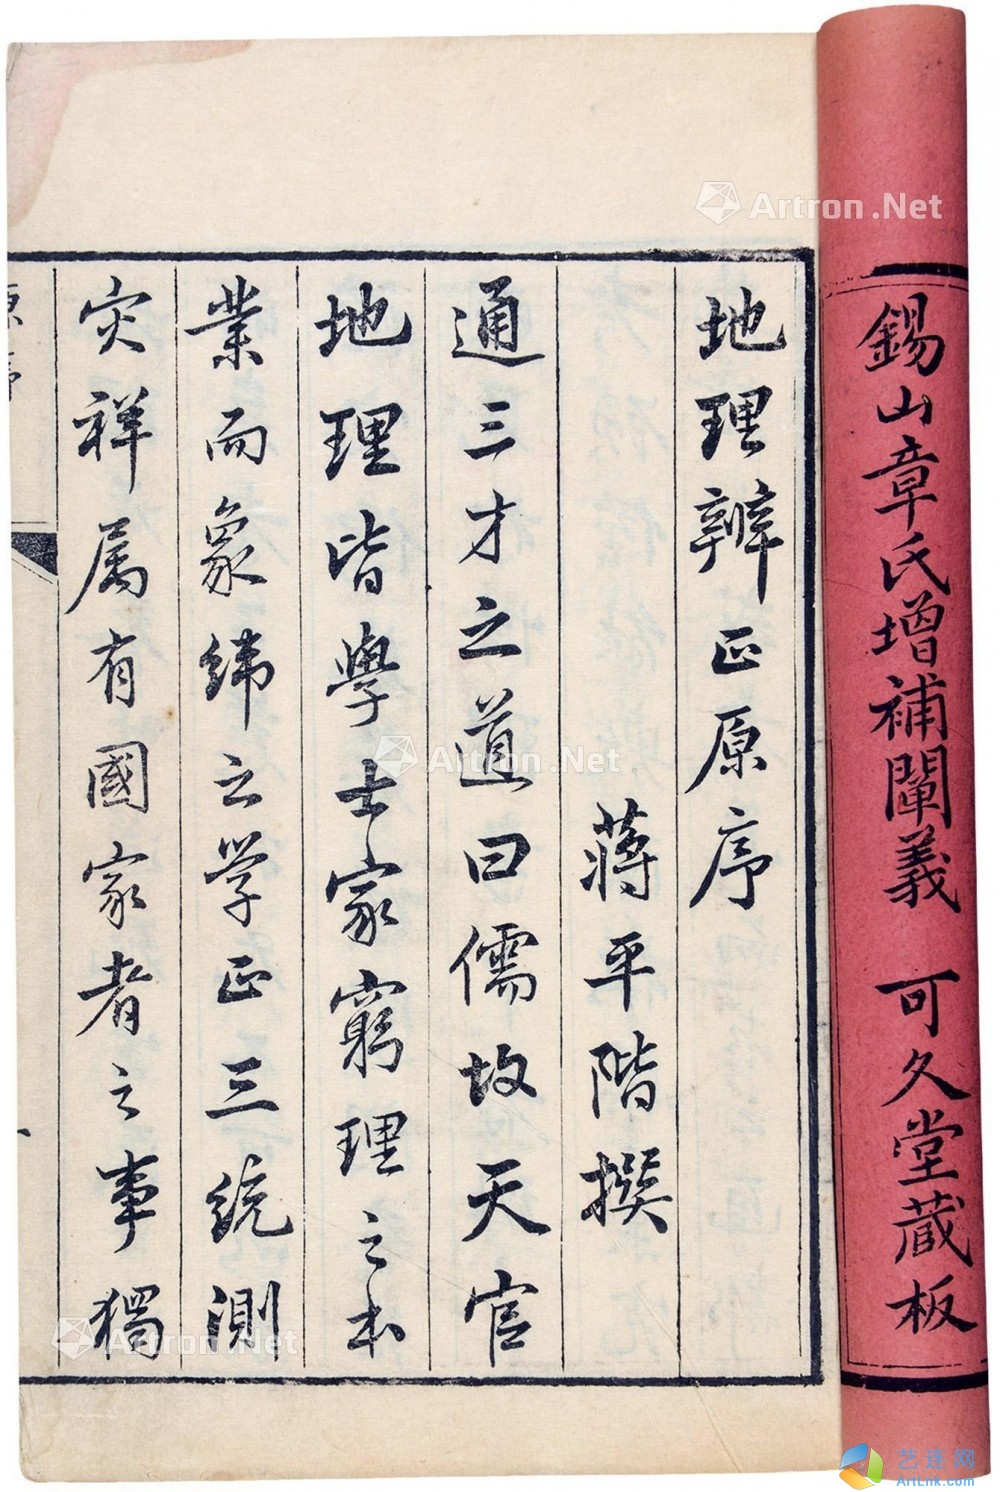 錫山章氏增補闡義 可久堂藏板
地理辨正原序
蔣平階撰
通三才之道曰儒故天官
地理皆學士家窮理之本
業而象緯之学正三統測
灾祥属有國家者之事獨
原序
Artron.Net
Artron.Net
Artron.Net
艺连网
ArtLnk.com